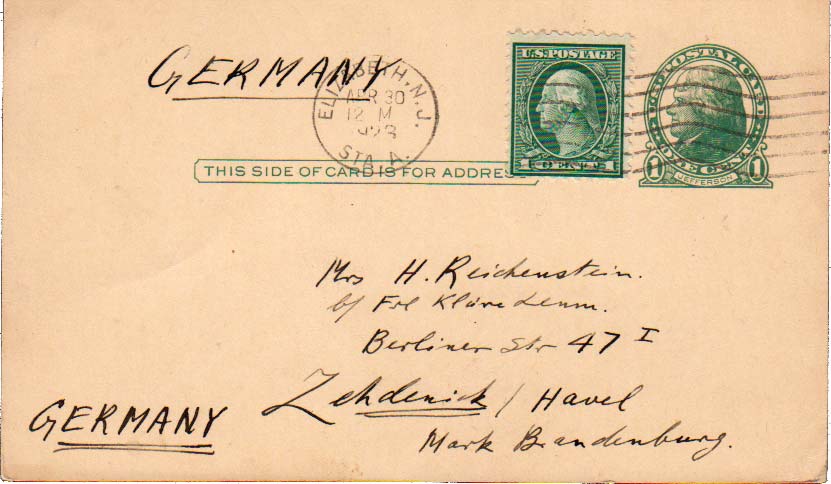 GERMANY
ELIZABETH, N.J.
APR 30
12 M
1923
STA. A.
U.S. POSTAGE
1 CENT 1
U.S. POSTAL CARD
1 ONE CENT 1
JEFFERSON
THIS SIDE OF CARD IS FOR ADDRESS
Mrs H. Reichenstein.
b/ Frl Kläre
Berliner Str 47 I
Zehdenick / Havel
GERMANY
Mark Brandenburg.